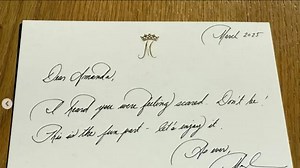 M
March 2025
Dear Amanda,
I heard you were feeling scared. Don't be!
This is the fun part - let's enjoy it.
As ever,